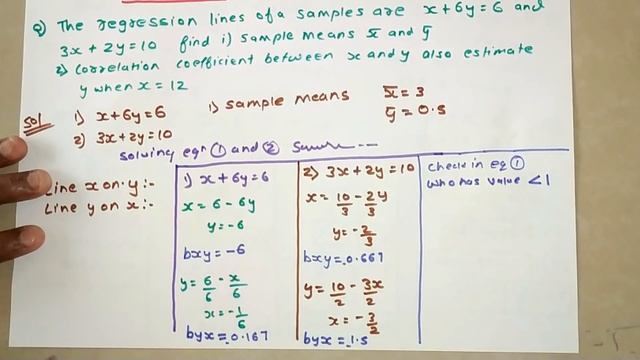 Q) The regression lines of a samples are x + 6y = 6 and
3x + 2y = 10 find i) sample means x̄ and ȳ
2) correlation coefficient between x and y also estimate
y when x = 12
Sol 1) x + 6y = 6
2) 3x + 2y = 10
1) sample means x̄ = 3
ȳ = 0.5
solving eqn ① and ②
Line x on y :-
Line y on x :-
1) x + 6y = 6
x = 6 - 6y
y = -6
bxy = -6
y = 6/6 - x/6
x = -1/6
byx = -0.167
2) 3x + 2y = 10
x = 10/3 - 2y/3
y = -2/3
bxy = -0.667
y = 10/2 - 3x/2
x = -3/2
byx = -1.5
check in eq ①
who has value < 1